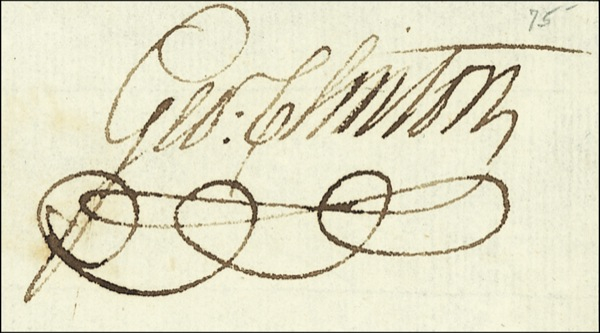 75
Geo: Clinton